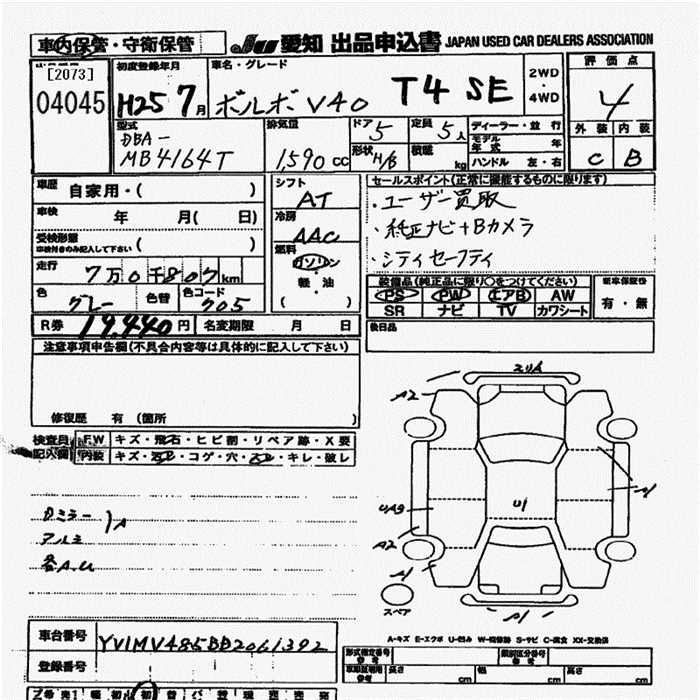 車内保管・守衛保管
JU 愛知 出品申込書 JAPAN USED CAR DEALERS ASSOCIATION
[2073]
04045
初度登録年月
H25 7月
車名・グレード
ボルボ V40 T4 SE
2WD・4WD
評価点
4
型式
DBA-
MB4164T
排気量
1,590 cc
ドア 5
定員 5人
形状 H/B
積載 kg
ディーラー・並行
モデル年式 年
ハンドル 左・右
外装 内装
C B
車歴 自家用・( )
車検 年 月( 日)
受検形態
車検付きのみ記入して下さい ( )
走行 7万0千807km
色 グレー 色替 色コード 705
R券 19,440円 名変期限 月 日
シフト
AT
冷房
AAC
燃料
ガソリン
軽・油
( )
セールスポイント(正常に機能するものに限ります)
・ユーザー買取
・純正ナビ+Bカメラ
・シティセーフティ
装備品(純正品に限り○をつけてください)
PS PW エアB AW
SR ナビ TV カワシート
新車保証書
有・無
後日品
注意事項申告欄(不具合内容等は具体的に記入して下さい)
修復歴 有(箇所 )
検査員記入欄
FW キズ・飛石・ヒビ割・リペア跡・X要
内装 キズ・汚レ・コゲ・穴・スレ・キレ・破レ
Dミラー
アルミ
各A.U
A
A2
U1
UA3
A2
A1
A1
スペア
A-キズ E-エクボ U-凹み W-補修跡 S-サビ C-腐食 XX-交換済
車台番号 YV1MV485BD2061392
登録番号
形式指定番号
参考
類別区分番号
参考
車庫証明用
参考
長さ cm
幅 cm
高さ cm